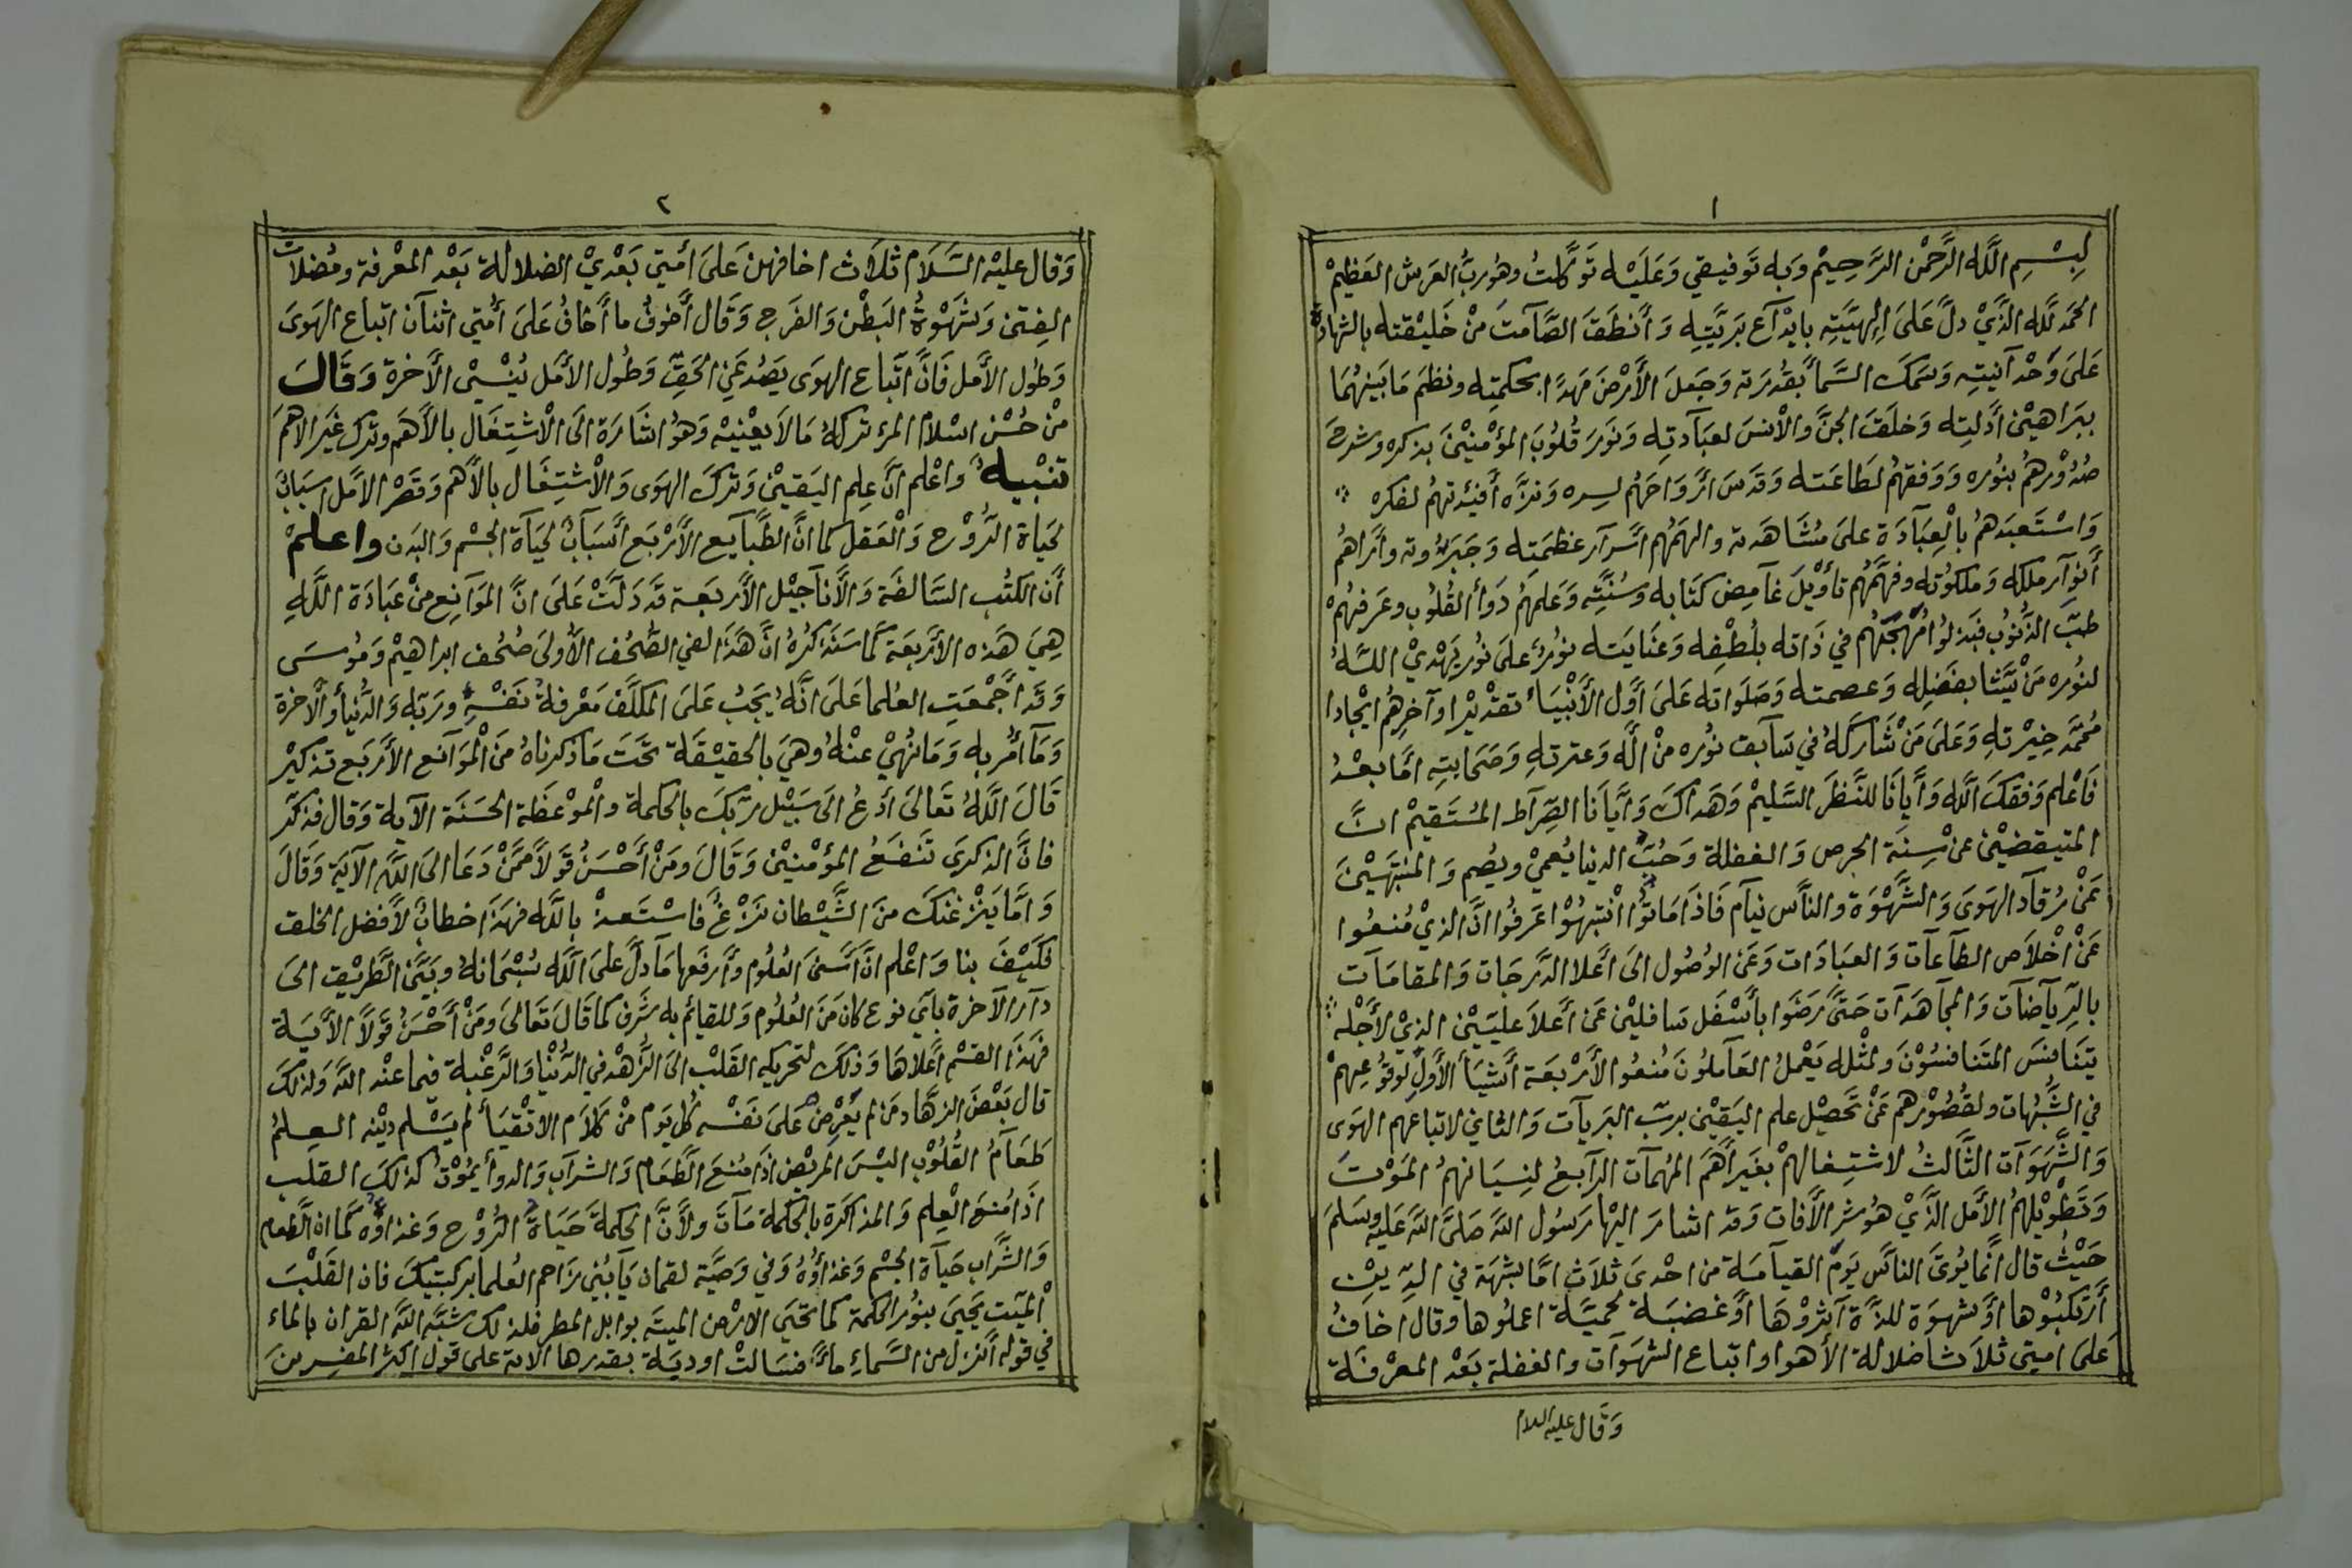 ١
لبسْمِ اللَّه الرَّحمْن الرَّحِيمْ وَبه تَوفيقي وَعَليَْه تَوكَّلتُ وهُوربُّ العَرش العَظيمْ
الحَمَد للَّه الذَّيْ دلَّ عَلىَ إلهيَّتِه بابْدآع بَريَّتِه وَ أنَطقَ الصَّآمتَ منْ خَليْقته بالشهادة
عَلىَ وَحْدآنيتِه وَسَمكَ السَّمأ بقُدرَته وَجَعلَ الأَرْضَ مَهدًا بحكمتِه ونظمَ مَابَينهُمَا
ببَراهيْن أدَلتِه وَخلَقَ الجنَّ والْأنسَ لعبَآدتِه وَنوَرَ قُلوُبَ المؤْمنيْنَ بذكره وشرحَ
صُدُوْرهمُ بنوُره وَوَفقهمُ لطَاعَته وَقدَسَ أرَوَاحَهمُ لسره وَنزَّه أفئدَتهمُ لفكره
وَاسْتَعبَدَهمُ بالْعِبَآدَة علىَ مشَاهَدته والهَمُهم اسَرآر عَظمَتِه وَجَبَروُته وأرَاهمُ
أنوآر ملكه وَملكوُته وفهمَّهُم تأوْيلَ غآمِض كتَابه وسُنَّتِه وَعَلمهَمُ دَوأ القُلوُب وعَرفهُمْ
طبَّ الذُّنوُب فبَذلوُا مُهَجَهُم في ذَاته بلُطْفِه وَعنَايتَه نوُرٌ علىَ نوُر يَهْديْ اللَّهُ
لنوُره مَنْ يَّشأ بفَضْلِه وَعصمته وَصَلَواته عَلىَ أوَّل الأَنْبيَأ تقدْيْرا وَآخرِهمُ ايْجادا
مُحمَّد خِيْرَتهِ وَعَلىَ مَنْ شَارَكهُ في سَآبق نوُره منْ الَه وَعترتهِ وَصَحَابتِه امَّا بعْدُ
فَاعْلم وَفقكَ اللَّه وَأيَانَا للنَّظرَ السَّليمْ وَهَدآكَ وَأيَّانَا الصِّرآط المسُتَقيمْ انَّ
المتيقضيْنَ عنْ سِنَة الحرص وَالغفلة وَحُبَّ الدنيا يُعميْ ويُصم وَالمنتَبهَيْنَ
عَنْ رُقآد الهَوىَ وَالشَّهْوَة والناَّس نيآم فَاذَا مَاتوُا انْتبهُوْا عَرفوُا انَّ الذيْ مُنعُوا
عَنْ اخْلاَص الطآعآت وَالعبَادَات وَعَن الوُصُول الىَ أعَلا الدَّرجَات وَالمقامَآت
بالرِّيآضآت وَالمجآهَدَات حَتىَّ رَضَوا بأسْفَل سَافليْن عَن أعَلاَ عليّيْنَ الذيْ لأجْله
يتَنَافسَ المتَنافسُوْنَ وَلمثْله يَعْملُ العَآملوُنَ مُنعوُا الأرْبعَة أشيَأ الأوَّل لوَقوُعِهمْ
في الشُّبهات ولقُصُوْرهم عَنْ تَحصيْل علم اليَقيْن برَبّ البَريآت وَالثاني لاتباعهم الهَوىَ
وَالشَّهوَآت الثَّالثُ لاشتِغالهمْ بغَير أهَمَّ المهُمآت الرآبعُ لنِسيَانهمُ المَوْتَ
وَتَطْويْلهمُ الأمَل الذَّيْ هوُشر الأفات وَقد اشَارَ اليْهَا رَسُول اللَّهَ صَلىَّ اللَّهَ عَليْه وسَلمَ
حَيْثُ قال أنَّمايُوتىَ الناَّس يَومَ القيآمَة من احْدىَ ثلاَثٍ امَّا بشُهَة في الدّيْنِ
أرَتكَبُوْها أوْ شهوَة للذَّة آثرُوْهَا أوْغضبَة لحميَّة اعملُوها وقال أخافُ
عَلىَ امتي ثلاَثا ضلالة الأهوا واتباع الشهَوَآت والغفلة بَعْد المعْرفَة
وَقَال عليه السلام
٢
وَقال عليْه السَّلاَم ثلاَث اخافهن عَلىَ أمَتي بَعْديْ الضلالة بَعْد المعْرفة ومُضلاَت
الفِتنِ وَشَهْوَةُ البَطْن وَالفَرج وَقَال أخوَفُ ما أخَافُ عَلىَ أمُتي اثنآن اتباع الهَوىَ
وَطوُل الأَمل فَانَّ اتّباع الهوَى يَصُد عَن الحَقِّ وَطوُل الأمَل يُنْسيْ الأخرة وَقَالَ
منْ حُسْن اسْلام المرء تركهُ مَا لاَيعْنيْه وَهوُ اشَارَة الىَ الْاشتِغَال بالأَهَم وتَرك غيَر الاهمَ
تنبْيهٌ وَاعْلم انَّ عِلم اليَقيْن وَتركَ الهَوى وَالْاشتِغَال بالأَهم وَقَصْر الأمَل اسبَابٌ
لحيَاة الرُّوْح وَالْعَقل كما انَّ الطَّبآيع الأرْبَع أسَبَآبٌ لحيَآة الجسْم وَالبَدَن واعلمْ
أنَ الكتُب السَّالفَة وَالأَنآجيْل الأرَبعَة قَد دَلَّتْ عَلىَ انَّ المَوآنِع منْ عبَادَة اللَّهِ
هِيَ هَذه الأرَبَعة كَمَا سَنَذكرُهُ انَّ هَذَا لفي الصُّحُف الأوُلىَ صُحُف ابراهيمْ وَموُسَى
وَقدَ أجْمَعَتِ العُلما عَلىَ انَّهُ يَجبُ عَلىَ المكلَّفْ مَعْرفةُ نَفْسهِ وَرَبّه وَالدُّنيأ وَالأَخرة
وَمَآ أمُر به وَمَا نهُيْ عنْهُ وهيَ بالحقيْقَة تحَتَ مَا ذكرنَاهُ منَ الْموَآنع الأرَبَع تذكيْر
قَالَ اللَّهُ تَعَالىَ أدعُ الىَ سَبيْل رَبّكَ بالحكمة وَالْموْعظَة الحسَنَة الآيةَ وَقَال فذكّر
فانَّ الذكرىَ تَنفعُ المؤْمنيْن وَقَالَ وَمَنْ أحَْسَنُ قَولاَ ممَّنْ دَعَا الىَ اللَّه الآيَة وَقَالَ
وَ امَّا يَنْزغنكَ منَ الشَّيْطان نَزْغٌ فاسْتَعذْ باللَّه فهَذَا خطابٌ لأفضل الخلق
فكَيْفَ بنا وَاعْلم انَّ أسَنىَ العُلُوم وأرفَعها مَآدلَّ علىَ اللَّه سُبْحَانهُ وبيَّنَ الطَّريْق الىَ
دآر الآخرة بأي نوع كانَ منَ العُلوُم وَللقايم به شَرَف كما قَالَ تعَالىَ وَمَنْ أحَْسَنُ قَولاً الأَيَة
فهَذَا القسْم أعَلاهَا وَذلكَ لتحَريكه القَلبَ الىَ الزُّهد في الدُّنْيا وَالرَّغبة فيما عنْد اللَّه وَلذلكَ
قال بَعْضَ الزهَّاد مَن لم يَعْرضْ عَلىَ نَفْسه كُلَّ يَوم منْ كلاَم الاتْقيَأ لم يَسْلم ديْنه العِلمُ
طَعَآمُ القُلُوْب اليْسَ المريْض اذَا مُنعَ الطَّعَام وَالشرَآب وَالدوأ يمُوْت كذلكَ القلَب
اذَا مُنعَ الْعِلم وَالمذاكرَة بالحكمَة مَآتَ ولأَنَّ الحكمَةَ حَيَاةُ الرُّوْح وَغذاؤُهُ كمَا ان الطَّعام
وَالشَّراب حَيآةَ الجسْم وَغذاؤُهُ وَفي وَصيَّة لقمان يَابُنيَّ زَاحم العُلما بركبتيْكَ فان القَلْبَ
الْميّت يَحْييَ بنوُر الحكمة كما تَحيْيَ الارْض الميتَه بوابل المطر فلذلكَ شَبَّهَ اللَّهَ القرانَ بالماء
في قوله أنَزلَ من السَّماءِ ماءً فسَالتْ اوديَة بقدَرها الاية على قول اكثر المفسرينَ